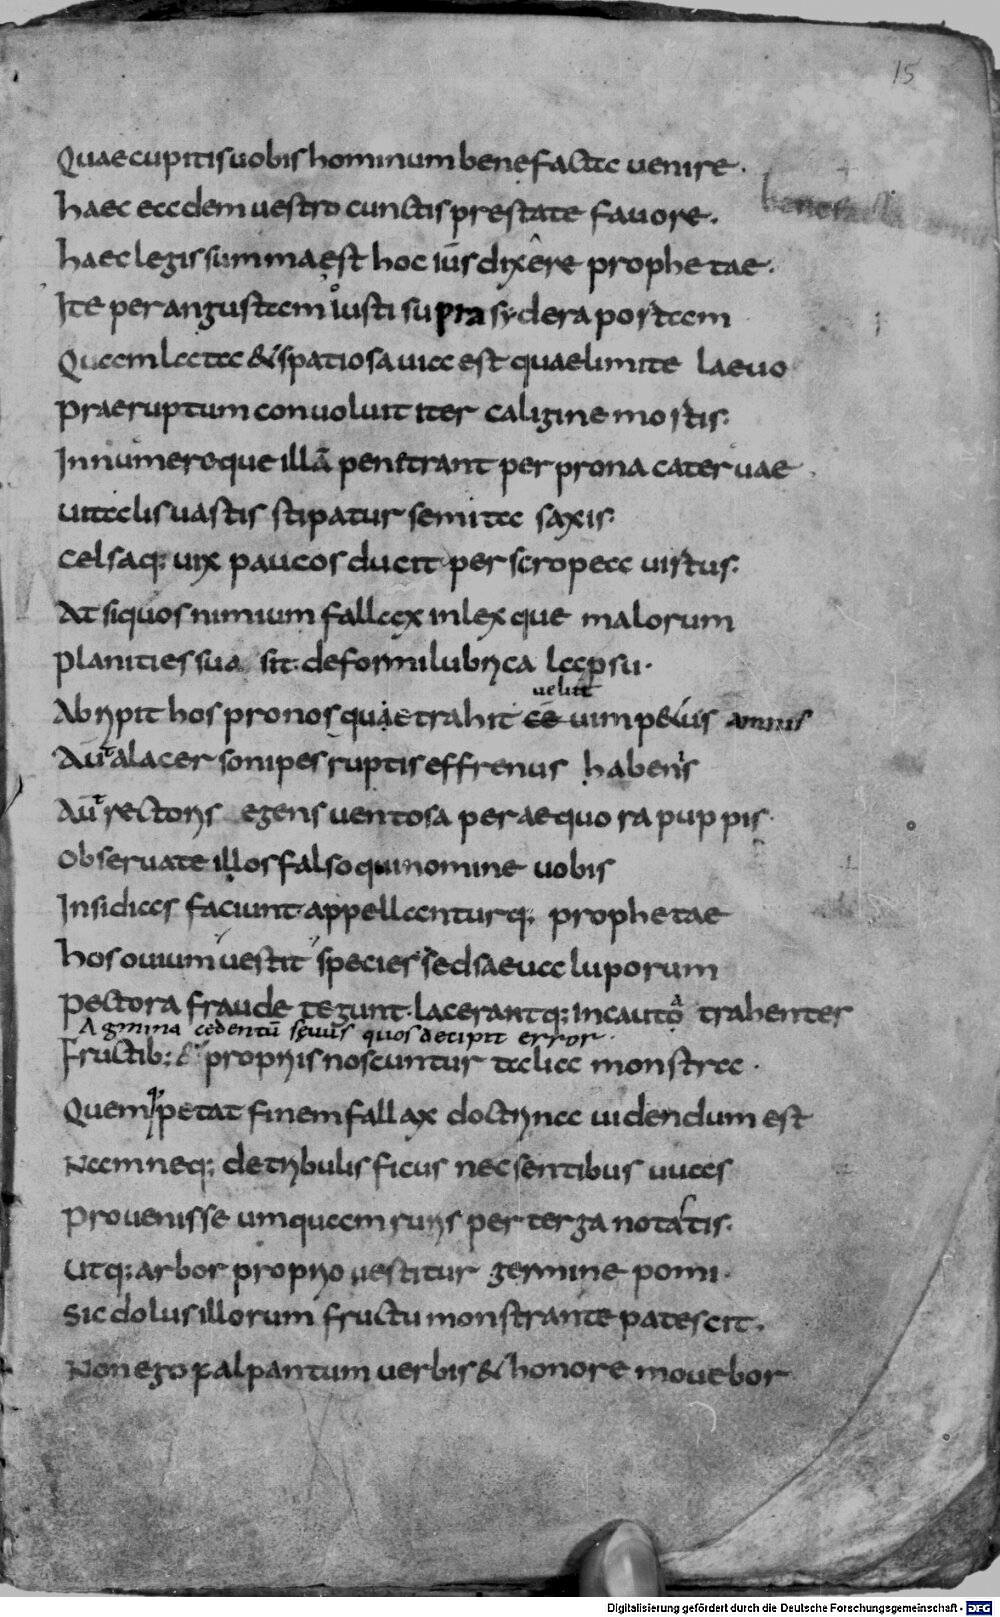 15
Quae cupitis uobis hominum benefacta uenire.
benefacta
haec eadem uestro cunctis prestate fauore.
haec legis summa est hoc iūs dixêre prophetae.
Ite per angustam iusti supra sydera portam
Quam lata & spatiosa uia est quae limite laeuo
praeruptum conuoluit iter caligine mortis.
Innumereque illā penetrant per prona cateruae
uitalis uastis stipatur semita saxis.
celsaq; uix paucos ducit per scropea uirtus.
At si quos nimium fallax inlexque malorum
planities sua sit deformi lubrica lapsu.
uelut
Abripit hos pronos quae trahit cē uim peius amnis
Aut alacer sonipes ruptis effrenus habenis
Aut rectoris egens uentosa per aequora puppis.
obseruate illos falso qui nomine uobis
Insidias faciunt appellanturq; prophetae
hos ouium uestit species sed saeua luporum
pectora fraude tegunt. lacerantq; incauto trahenter
Agmina cedentū seuus quos decipit error.
Fructib; & propriis noscuntur talia monstra.
Quem petat finem fallax doctrina uidendum est
Nam neq; de tribulis ficus nec sentibus uuas
prouenisse umquam ruris per terga notatis.
utq; arbor proprio uestitur germine pomi.
Sic dolus illorum fructu monstrante patescit.
Non ego palpantum uerbis & honore mouebor
Digitalisierung gefördert durch die Deutsche Forschungsgemeinschaft - DFG